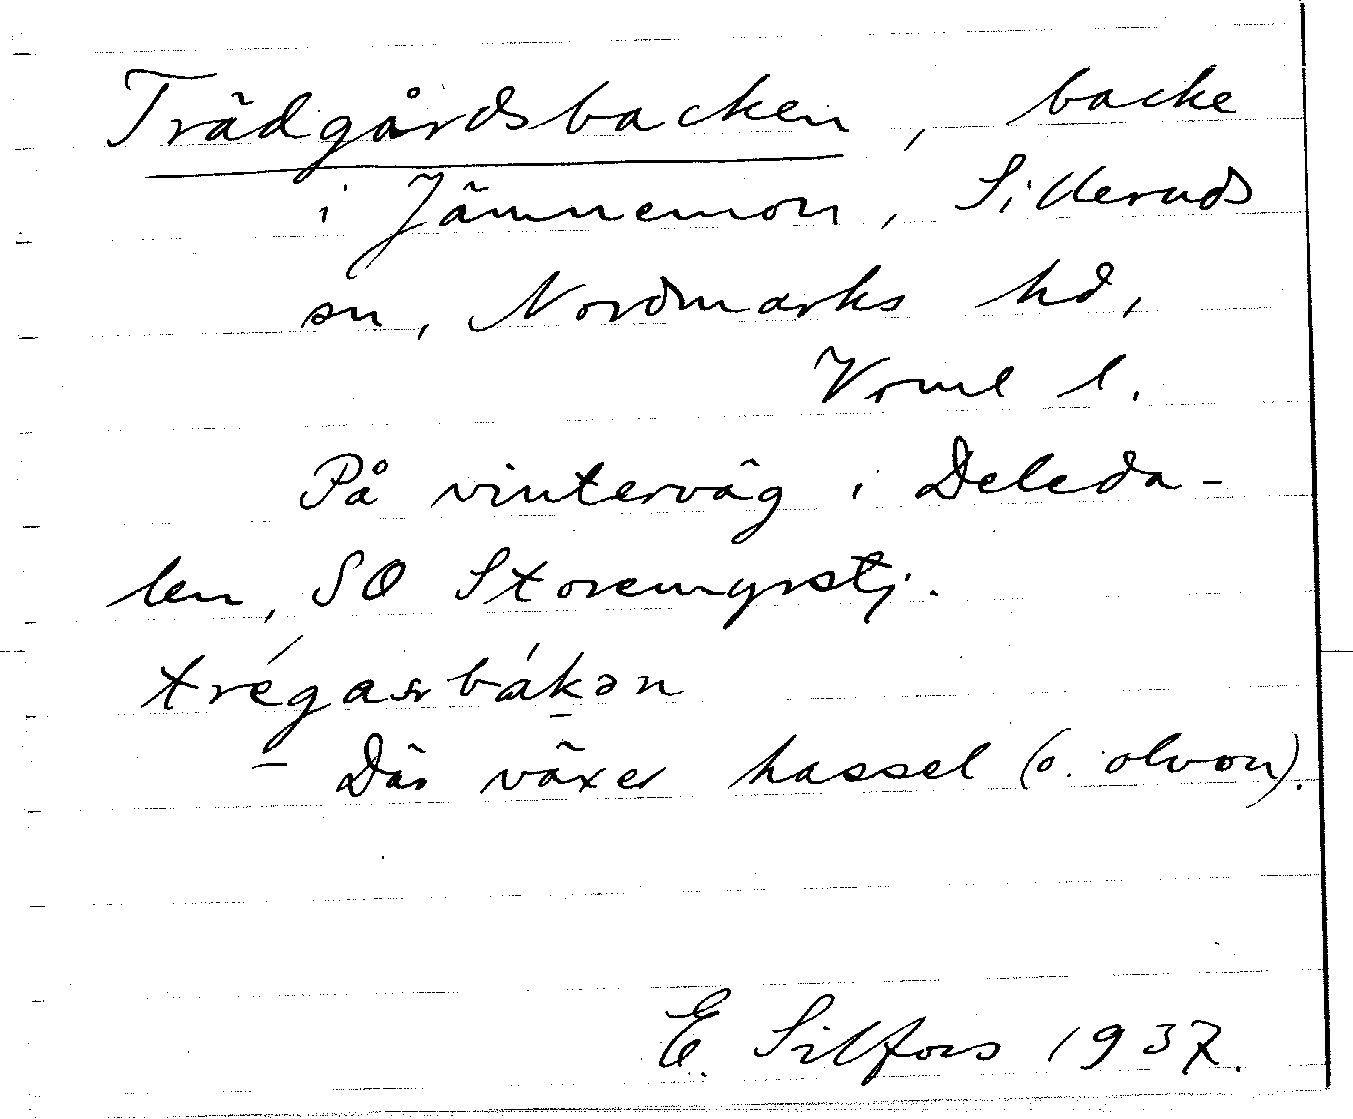 Trädgårdsbacken, backe
i Jämnemon, Silleruds
sn, Nordmarks hd,
Vrml l.
På vinterväg i Deleda-
len, SO Storemyrstj.
trégasrbákən
- Där växer hassel (o. olvon).
E. Silfors 1937.